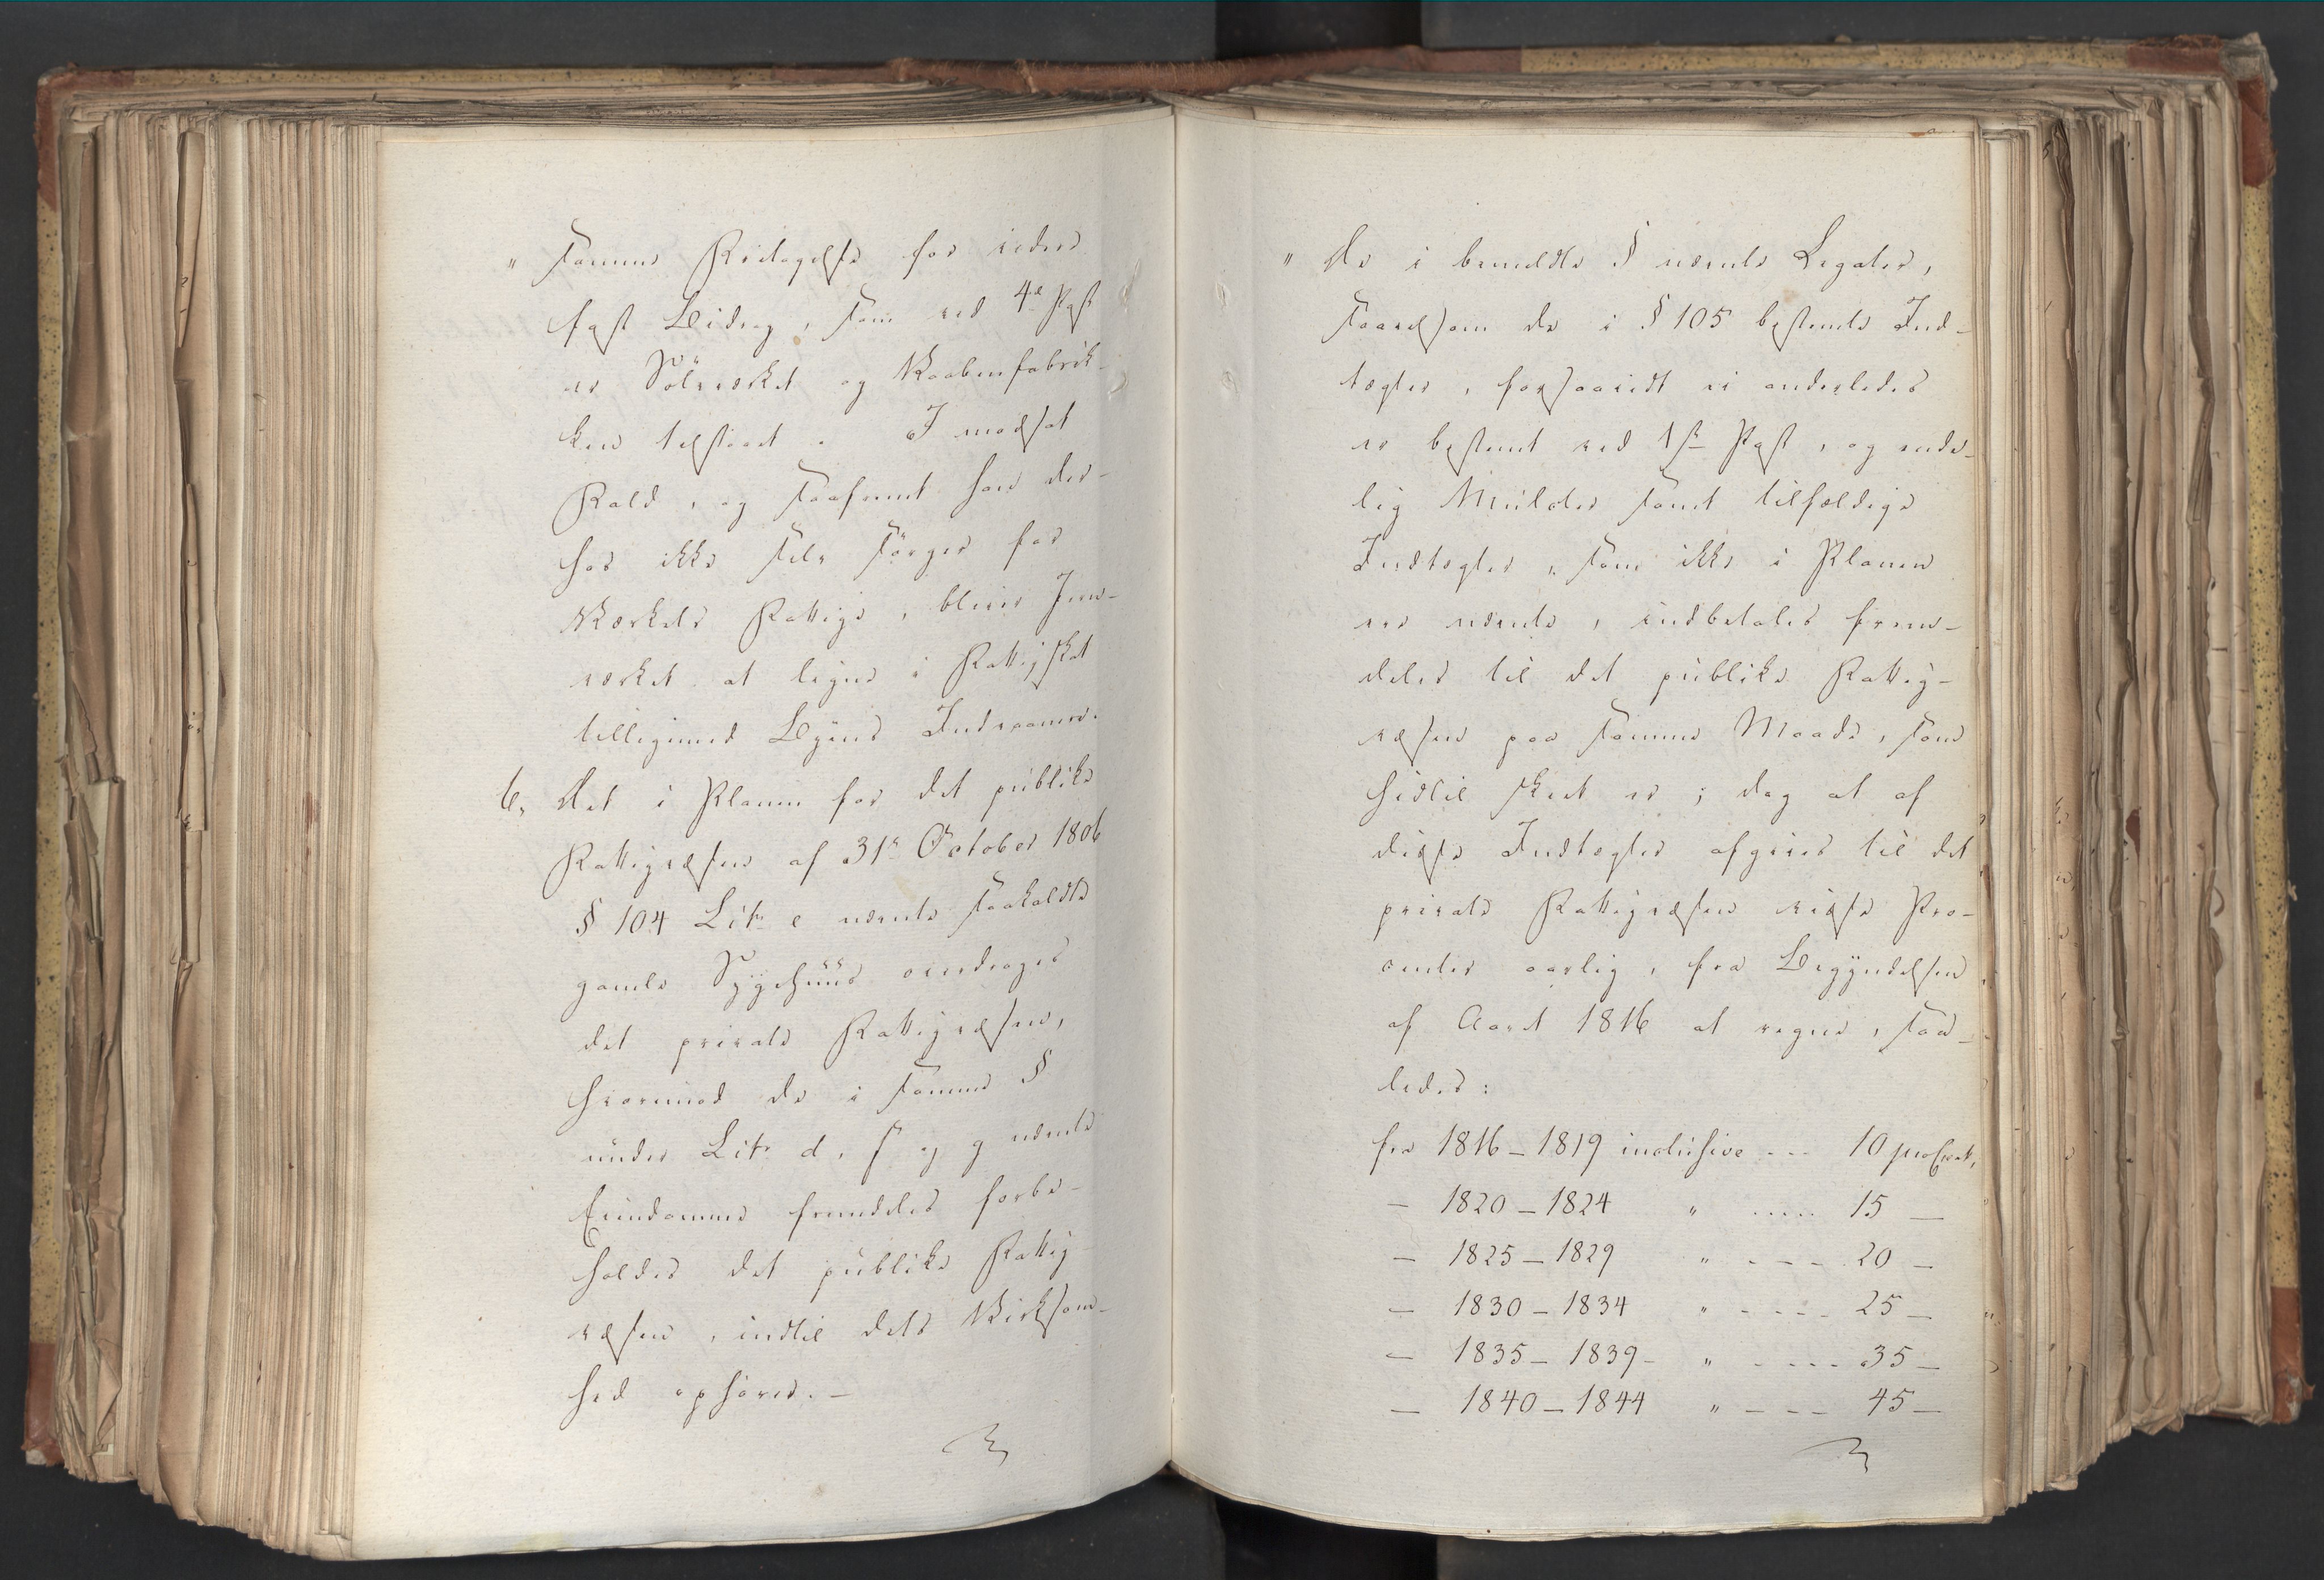 " samme Betingelse for videre
fast Bidrag, som ved 4de Post
er Sölvværket og Vaabenfabrik-
ken tilstaaet. I modsat
Fald, og saafremt han der-
for ikke selv sörger for
Værkets Fattige, bliver Jern-
værket at ligne i Fattigskat
tilligemed Byens Indvaanere.
6, Det i Planen for det publike
Fattigvæsen af 31te October 1806
§ 104 Litr e nævnte saakaldte
gamle Sygehuus overdrages
det private Fattigvæsen,
hvorimod de i samme §
under Litr d, f og g nævnte
Eiendomme fremdeles forbe-
holdes det publike Fattig-
væsen, indtil dets Virksom-
hed ophörer. —
" De i bemeldte § nævnte Legater,
saavelsom de i § 105 bestemte Ind-
tægter, forsaavidt ei anderledes
er bestemt ved 1ste Post, og ende-
lig Mulcter samt tilfældige
Indtægter, som ikke i Planen
ere nævnte, indbetales frem-
deles til det publike Fattig-
væsen paa samme Maade, som
hidtil skeet er; dog at af
disse Indtægter afgives til det
private Fattigvæsen visse Pro-
center aarlig, fra Begyndelsen
af Aaret 1816 at regne, saa-
ledes:
fra 1816 – 1819 inclusive --- 10 proCent,
— 1820 – 1824 " ..... 15 —
— 1825 – 1829 " ---- 20 —
— 1830 – 1834 " ---- 25 —
— 1835 – 1839 - " ---- 35 —
— 1840 – 1844 " ---- 45 —